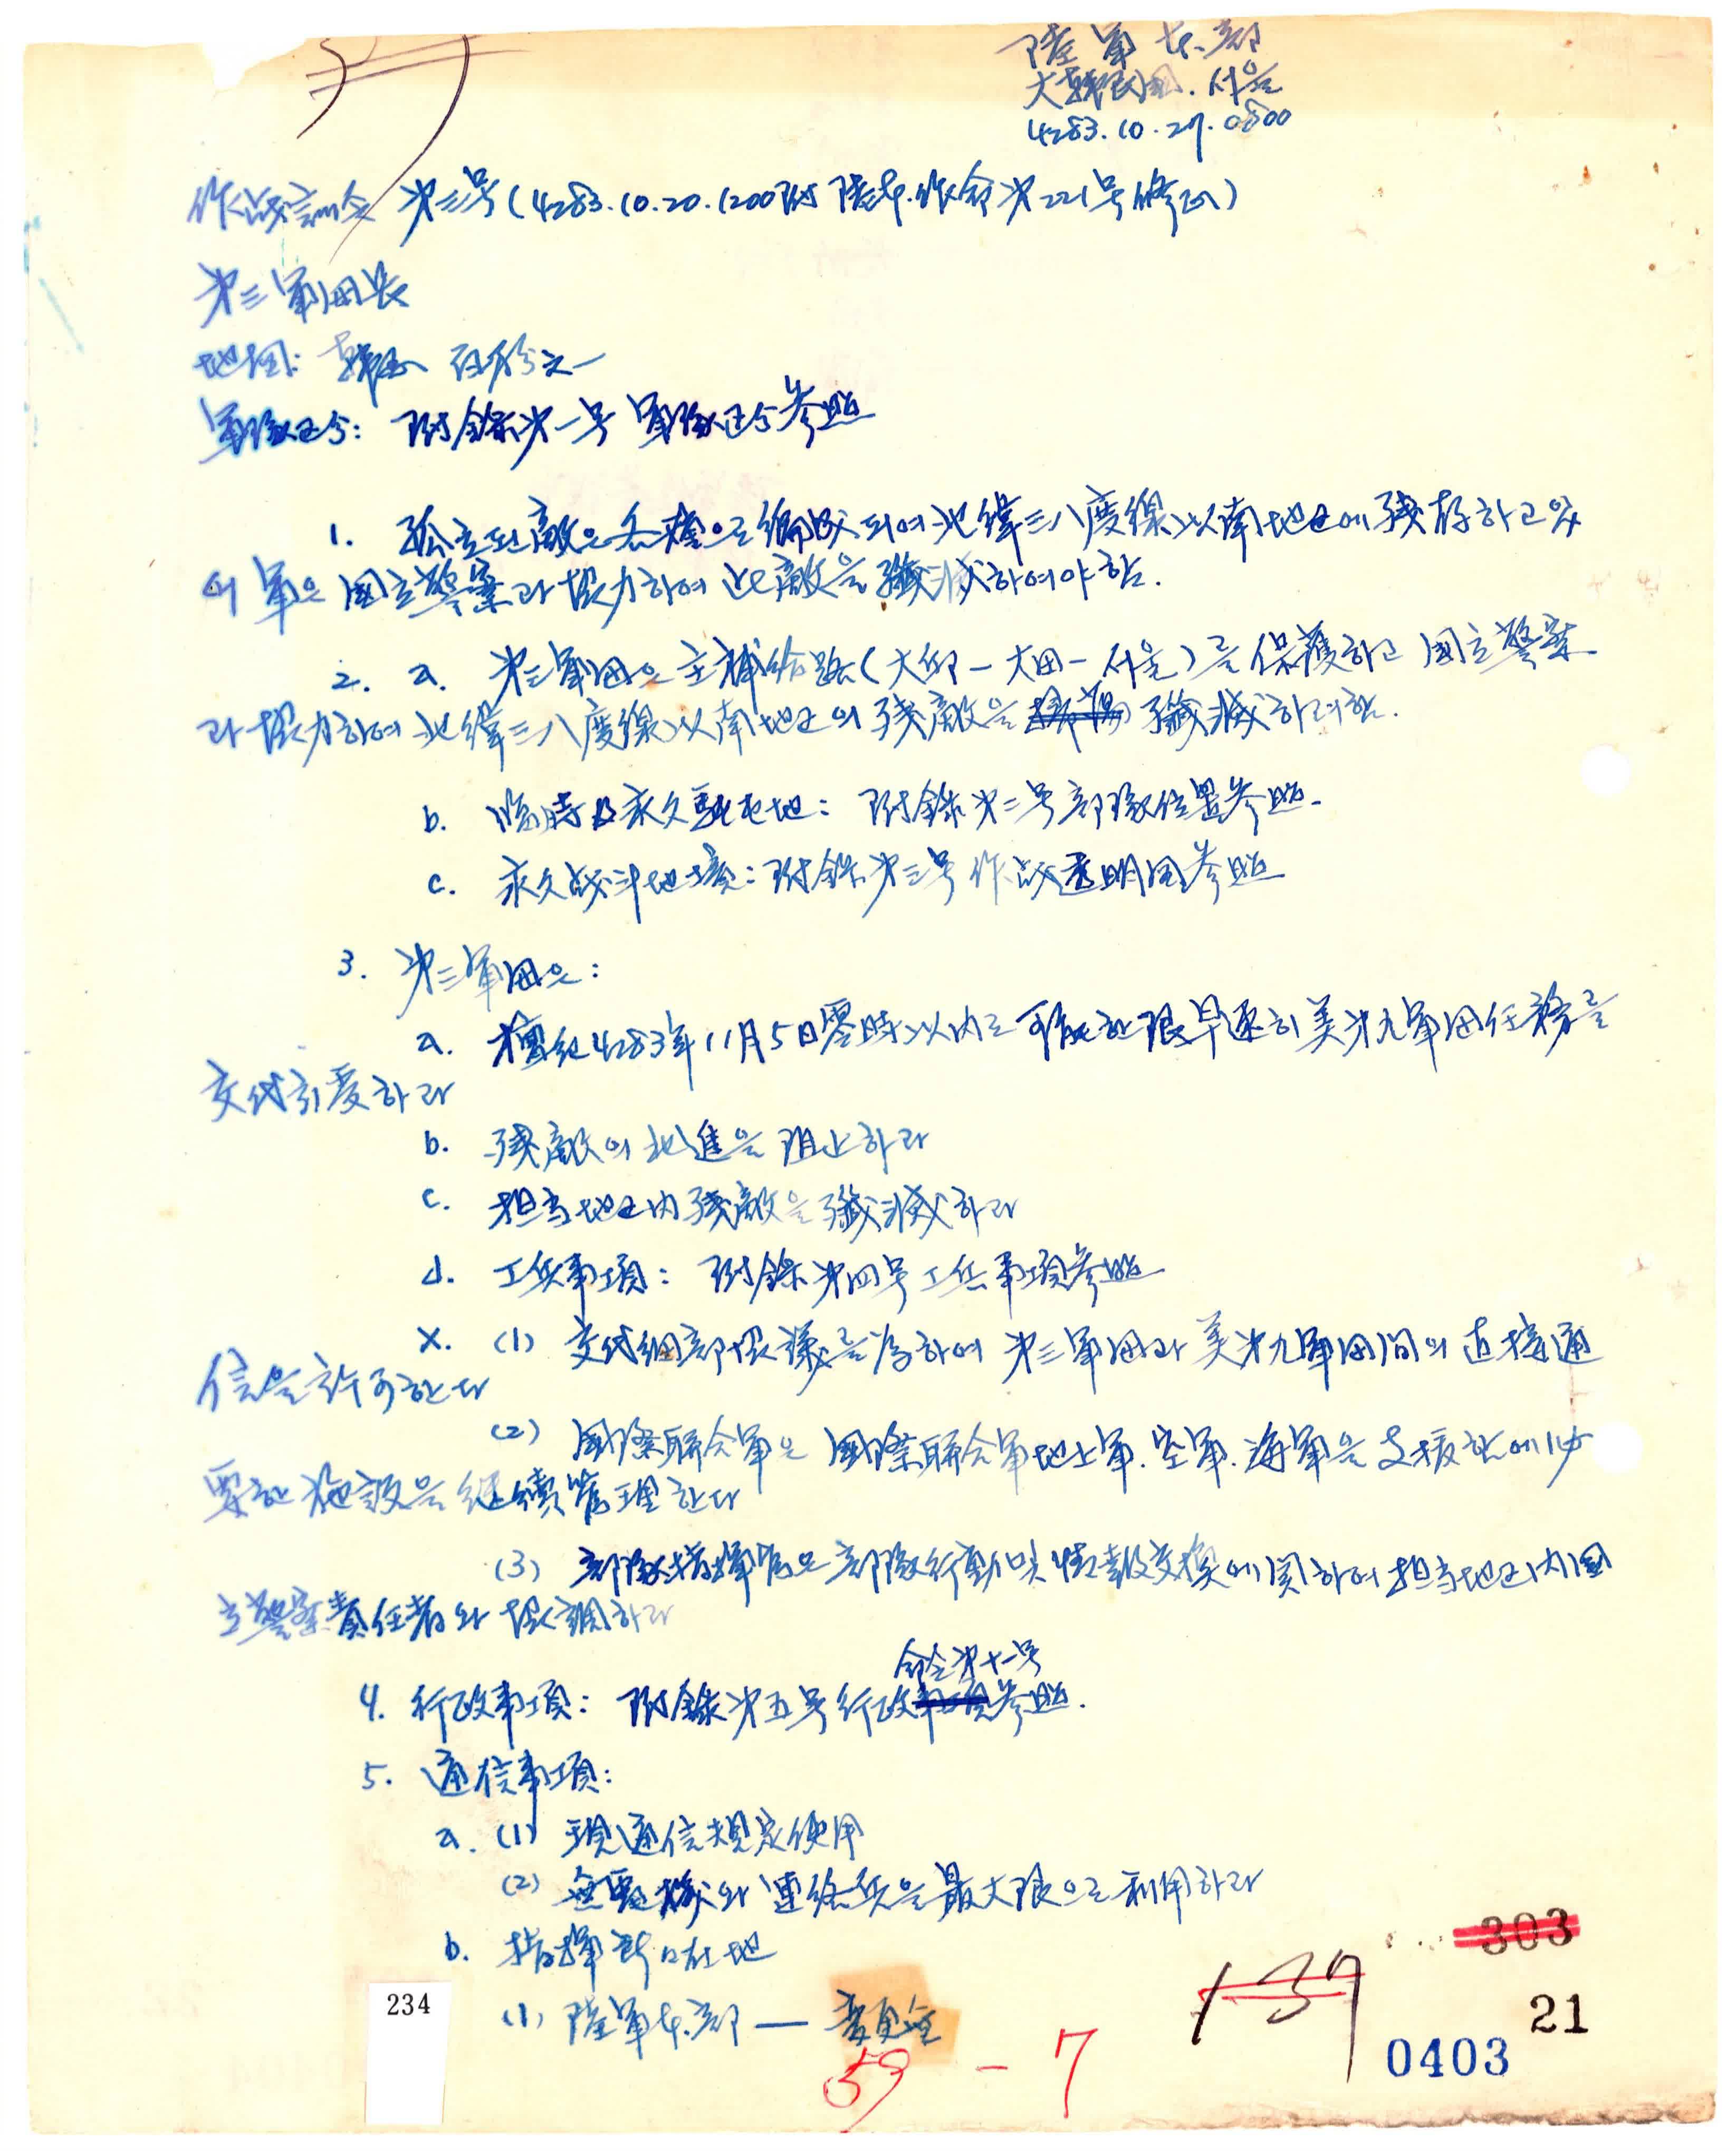 陸軍本部
大韓民國. 서울
4283.10.27.0800
作战訓令 第三号(4283.10.20.1200附 陸本.作命第221号修正)
第三軍団長
地図: 韓国 百万分之一
軍隊区分: 附錄第一号 軍隊区分参照
1. 孤立된 敵은 各種으로 編成되여 北緯三八度線以南地区에 残存하고있
어 軍은 国立警察과 協力하여 此敵을 殲滅하여야 함.
2. a. 第三軍団은 主補給路(大邱-大田-서울)를 保護하고 国立警察
과 協力하여 北緯三八度線以南地区의 残敵을 殲滅하려함.
b. 臨時及永久駐屯地: 附錄第二号部隊位置参照.
c. 永久战斗地境: 附錄第三号作战透明図参照
3. 第三軍団은:
a. 檀紀4283年11月5日零時以内로 可能한限早速히 美第九軍団任務를
交代引受하라
b. 残敵의 北進을 阻止하라
c. 担当地区内残敵을 殲滅하라
d. 工兵事項: 附錄第四号工兵事項参照
X. (1) 交代細部協議를 為하여 第三軍団과 美第九軍団間의 直接通
信을 許可한다
(2) 国際聯合軍은 国際聯合軍地上軍.空軍.海軍을 支援함에 必
要한 施設을 継續管理한다
(3) 部隊指揮官은 部隊行動및 情報交換에 関하여 担当地区内国
立警察責任者와 協調하라
命令第十一号
4. 行政事項: 附錄第五号行政事項参照.
5. 通信事項:
a. (1) 現通信規定使用
(2) 無電機와 連絡兵을 最大限으로 利用하라
b. 指揮所所在地
(1) 陸軍本部 —
303
137
21
0403
234
59 - 7